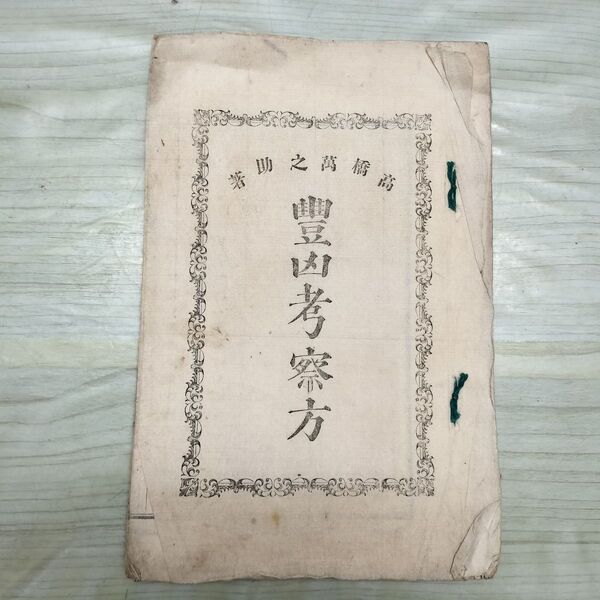 高橋萬之助著
豐凶考察方